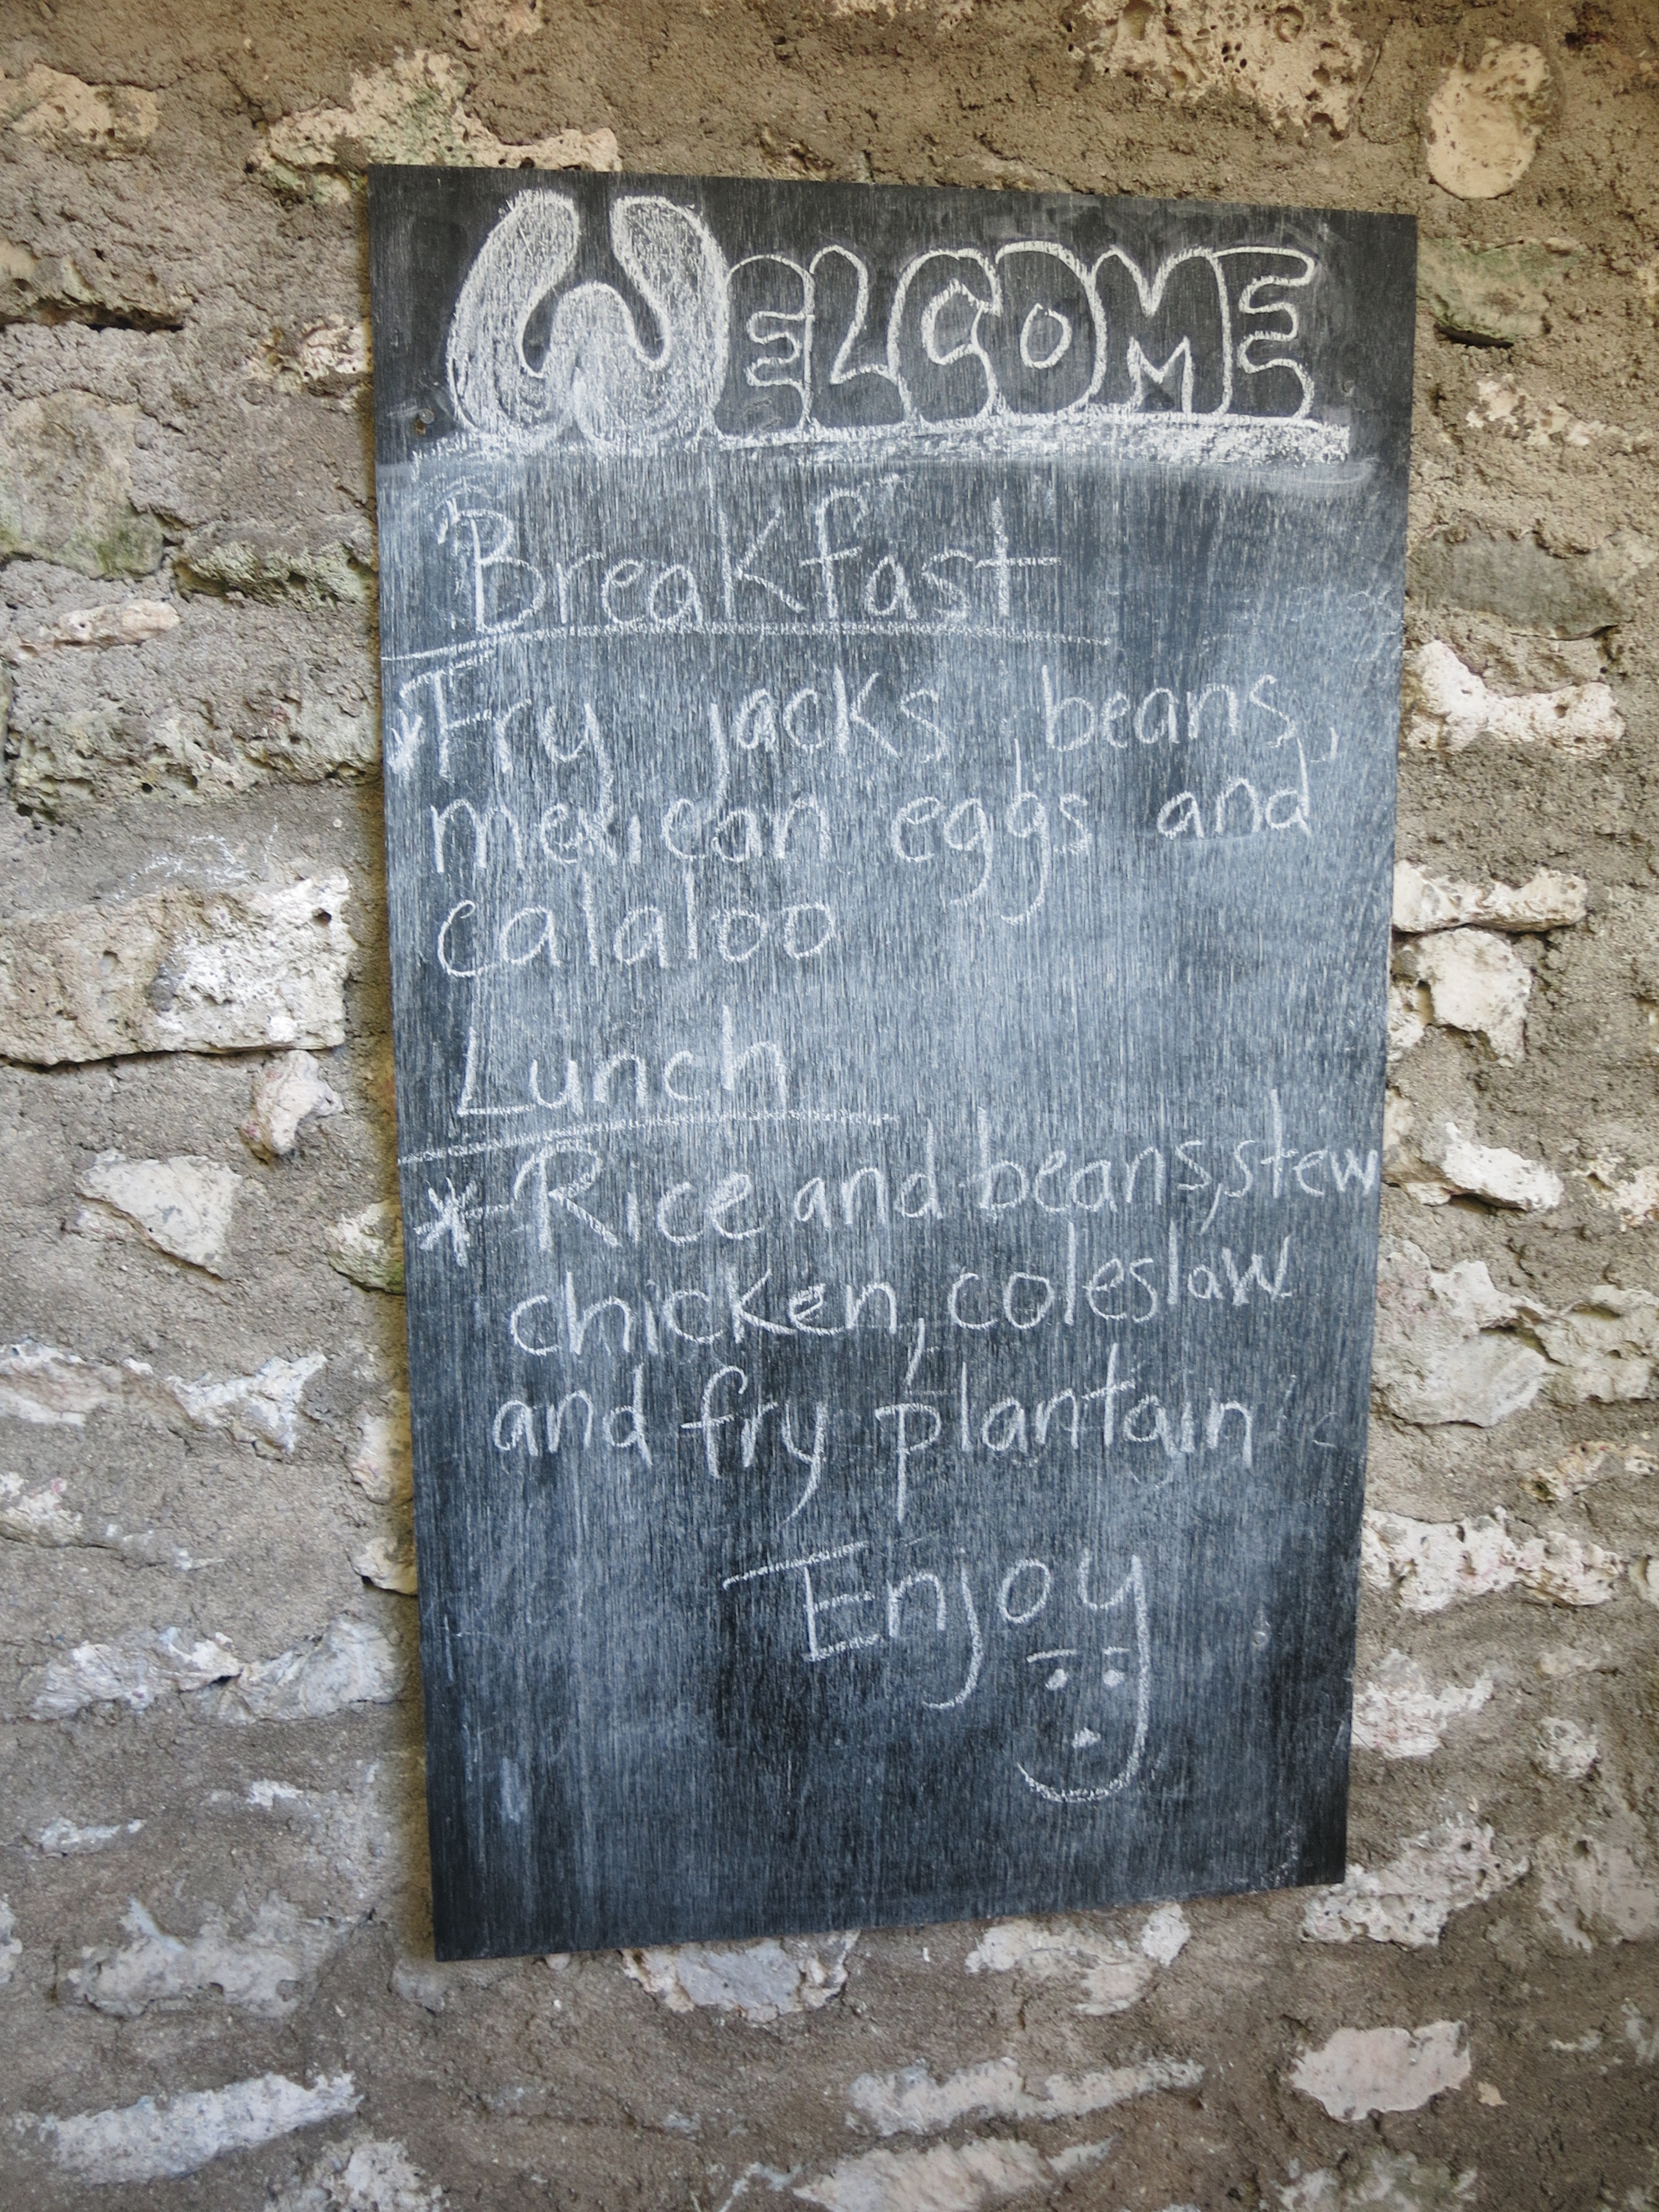 WELCOME
Breakfast
*Fry jacks, beans,
mexican eggs and
calaloo
Lunch
* Rice and beans, stew
chicken, coleslaw
and fry plantain
Enjoy